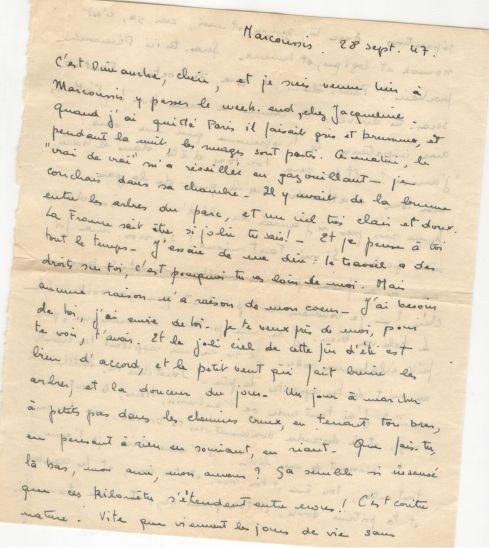 Marcoussis. 28 sept. 47.
C'est Dimanche, chéri, et je suis venue hier à
Marcoussis y passer le week-end, chez Jacqueline.
quand j'ai quitté Paris il faisait gris et brumeux, et
pendant la nuit, les nuages sont partis. Ce matin, le
"vrai de vrai" m'a réveillée en gazouillant - je
couchais dans sa chambre. Il y avait de la brume
entre les arbres du parc, et un ciel très clair et doux.
La France sait être si jolie tu sais! - Et je pense à toi
tout le temps. J'essaie de me dire : le travail a des
droits sur toi, c'est pourquoi tu es loin de moi. Mais
aucune raison n'a raison de mon coeur - J'ai besoin
de toi, j'ai envie de toi. Je te veux près de moi, pour
te voir, t'avoir. Et le joli ciel de cette fin d'été est
bien d'accord, et le petit vent qui fait les
arbres, et la douceur du jour. Un jour à marcher
à petits pas dans les chemins creux, en tenant ton bras,
en pensant à rien en souriant, en riant. Que fais-tu,
là bas, mon ami, mon amour? Ça semble si insensé
que ces kilomètres s'étendent entre nous! C'est contre
nature. Vite que viennent les jours de vie sans